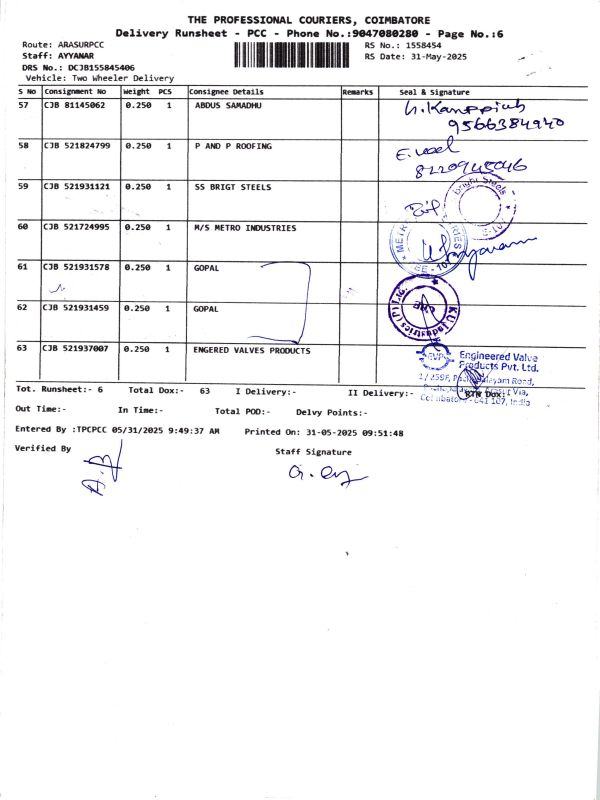 THE PROFESSIONAL COURIERS, COIMBATORE
Delivery Runsheet - PCC - Phone No.:9047080280 - Page No.:6
Route: ARASURPCC RS No.: 1558454
Staff: AYYANAR RS Date: 31-May-2025
DRS No.: DCJB155845406
Vehicle: Two Wheeler Delivery
S No Consignment No Weight PCS Consignee Details Remarks Seal & Signature
57 CJB 81145062 0.250 1 ABDUS SAMADHU
9566384940
58 CJB 521824799 0.250 1 P AND P ROOFING
59 CJB 521931121 0.250 1 SS BRIGT STEELS
Bright Steels
60 CJB 521724995 0.250 1 M/S METRO INDUSTRIES
61 CJB 521931578 0.250 1 GOPAL
62 CJB 521931459 0.250 1 GOPAL
63 CJB 521937007 0.250 1 ENGERED VALVES PRODUCTS
EVP Engineered Valve
Products Pvt. Ltd.
Tot. Runsheet:- 6 Total Dox:- 63 I Delivery:- II Delivery:- RTN Dox:
Coimbatore - 641 107, India
Out Time:- In Time:- Total POD:- Delvy Points:-
Entered By :TPCPCC 05/31/2025 9:49:37 AM Printed On: 31-05-2025 09:51:48
Verified By Staff Signature